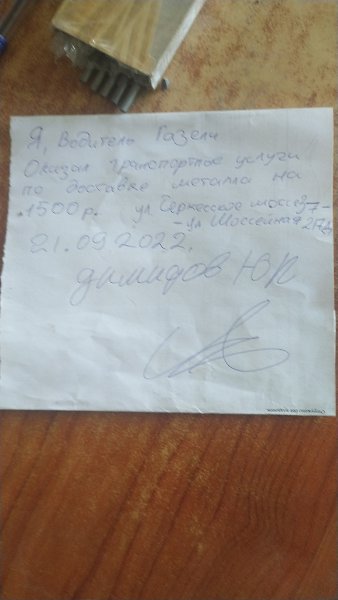 Я, Водитель Газели
Оказал транспортные услуги
по доставке металла на
1500 р. ул Черкесское шоссе 37-
- ул Шоссейная
21.09.2022.
Димидов Ю